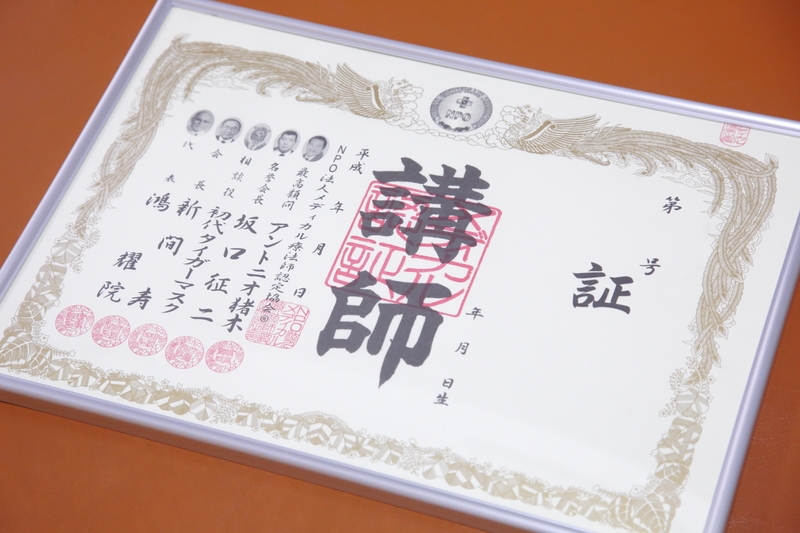 NPO
第 号
証
年 月 日生
講師
平成 年 月 日
NPO法人メディカル療法師認定協会㊞
最高顧問 アントニオ猪木
名誉会長 坂口征二
相談役 初代タイガーマスク
会長 新間寿
代表 鴻耀院